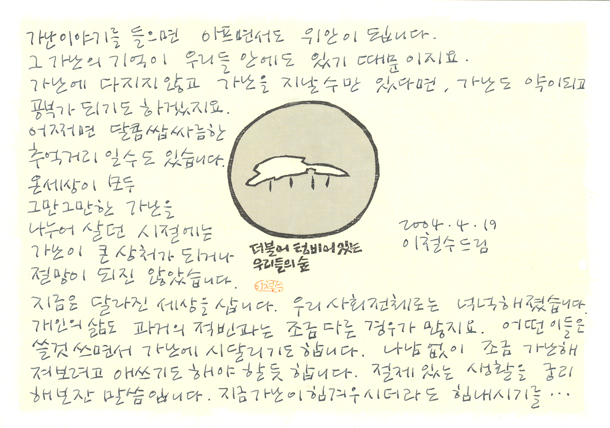 가난이야기를 들으면 아프면서도 위안이 됩니다.
그 가난의 기억이 우리들 안에도 있기 때문이지요.
가난에 다치지않고 가난을 지날수만 있다면, 가난도 약이되고
공부가 되기도 하겠지요.
어쩌면 달콤쌉싸름한
추억거리 일수도 있습니다.
온세상이 모두
그만그만한 가난을
나누어 살던 시절에는
가난이 큰 상처가 되거나
절망이 되진 않았습니다.
더불어 텅비어있는
우리들의 숲
2004.4.19
이철수드림
지금은 달라진 세상을 삽니다. 우리 사회전체로는 넉넉해졌습니다.
개인의삶도 과거의 적빈과는 조금 다른 경우가 많지요. 어떤이들은
쓸것 쓰면서 가난에 시달리기도합니다. 나남없이 조금 가난해
져보려고 애쓰기도 해야 할듯 합니다. 절제있는 생활을 궁리
해보잔 말씀입니다. 지금가난이힘겨우시더라도 힘내시기를…